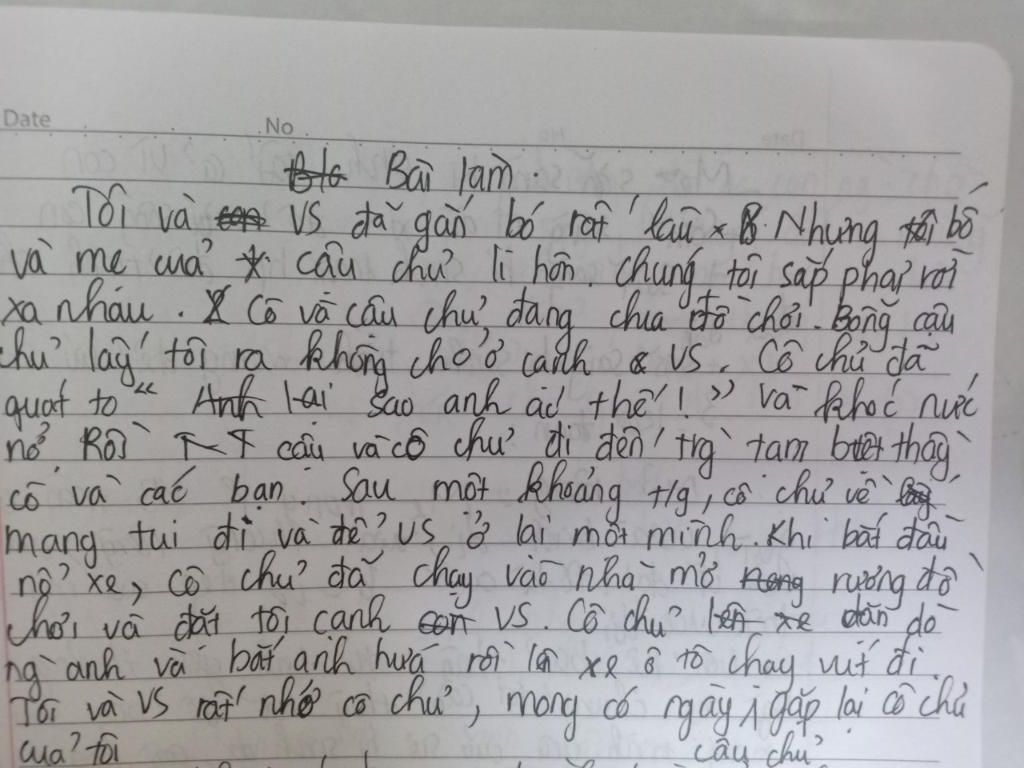 Date No
Bài làm.
Tôi và VS đã gắn bó rất lâu. Nhưng bố
và mẹ của cậu chủ li hôn. chúng tôi sắp phải rời
xa nhau. Cô và cậu chủ, đang chia đồ chơi. Bỗng cậu
chủ lấy tôi ra không cho ở cạnh VS. Cô chủ đã
quát to " Sao anh ác thế! " và khóc nức
nở. Rồi cậu và cô chủ đi đến trg tạm biệt thầy
cô và các bạn. Sau một khoảng t/g, cô chủ về
mang tui đi và để VS ở lại một mình. Khi bắt đầu
nổ xe, cô chủ đã chạy vào nhà mở rương đồ
chơi và đặt tôi cạnh VS. Cô chủ dặn dò
ng anh và bắt anh hứa rồi lên xe ô tô chạy vút đi.
Tôi và VS rất nhớ cô chủ, mong có ngày gặp lại cô chủ
của tôi cậu chủ